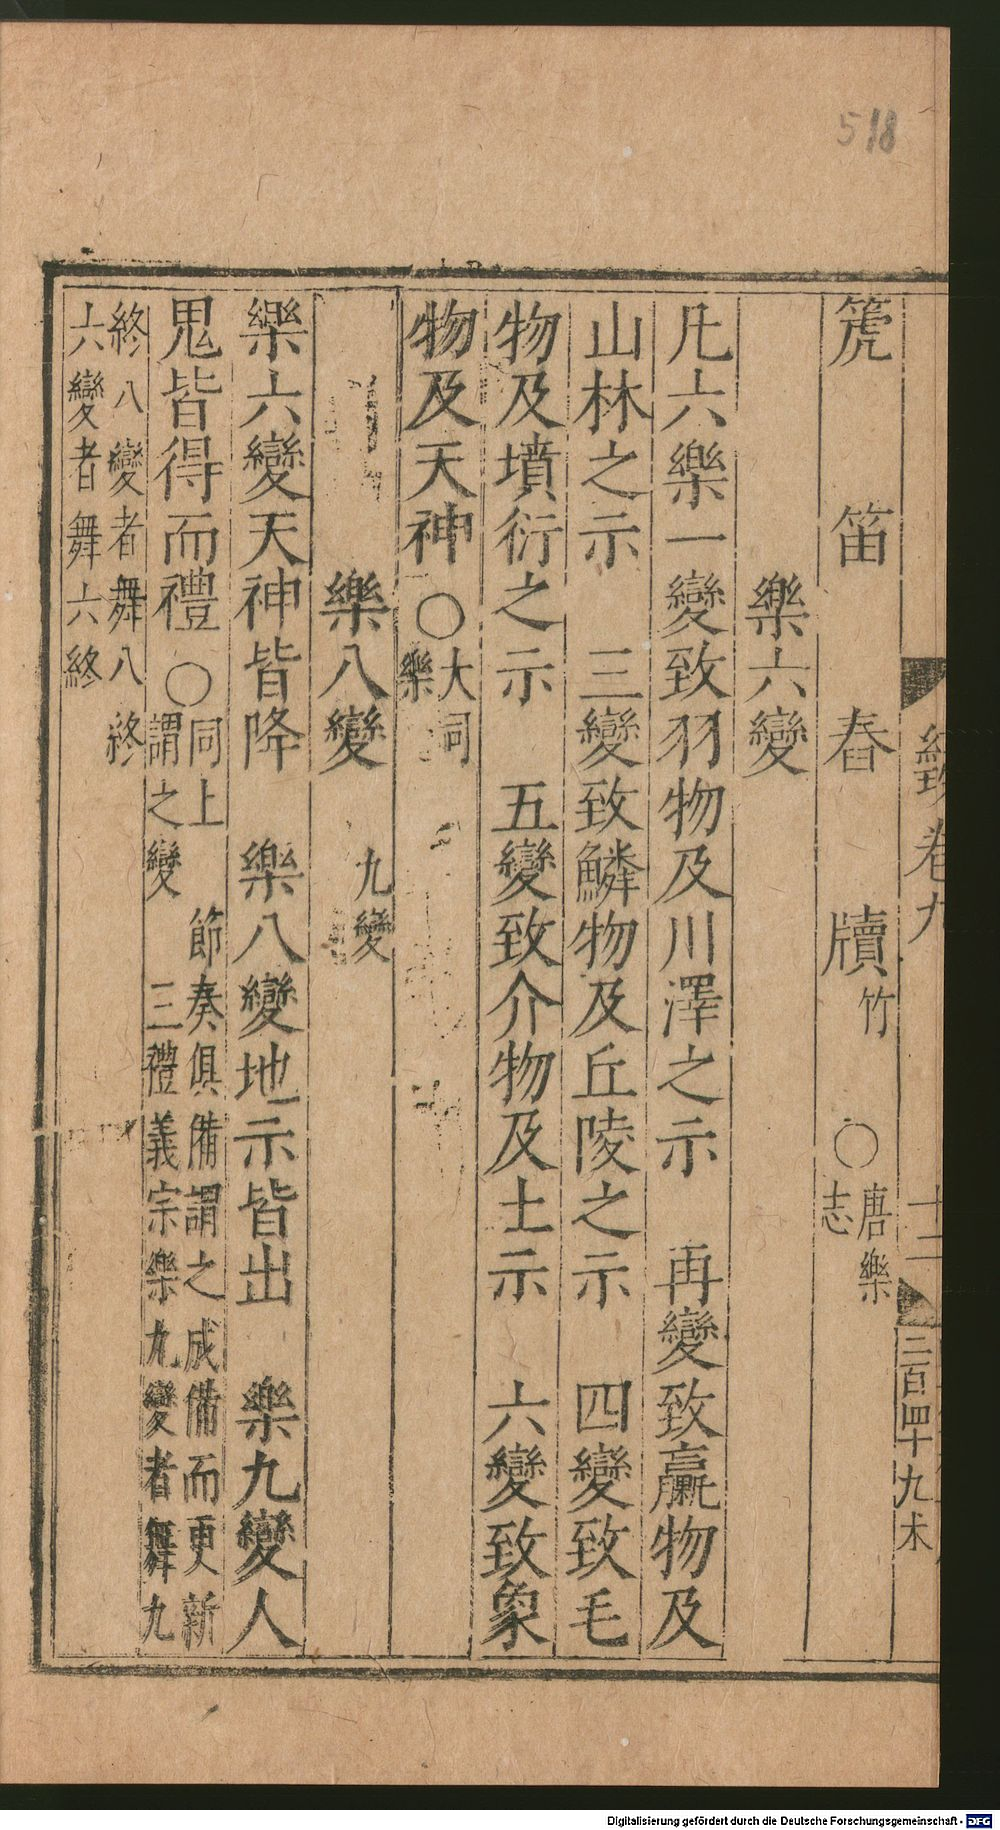 518
經攷卷九 十二 三百四十九木
箎 笛 舂 牘竹 ○唐樂志
樂六變
凡六樂一變致羽物及川澤之示 再變致臝物及
山林之示 三變致鱗物及丘陵之示 四變致毛
物及墳衍之示 五變致介物及土示 六變致象
物及天神○大司樂
樂八變 九變
樂六變天神皆降 樂八變地示皆出 樂九變人
鬼皆得而禮○同上 節奏俱備謂之成備而更新
謂之變 三禮義宗樂九變者舞九
終八變者舞八終
六變者舞六終
Digitalisierung gefördert durch die Deutsche Forschungsgemeinschaft - DFG